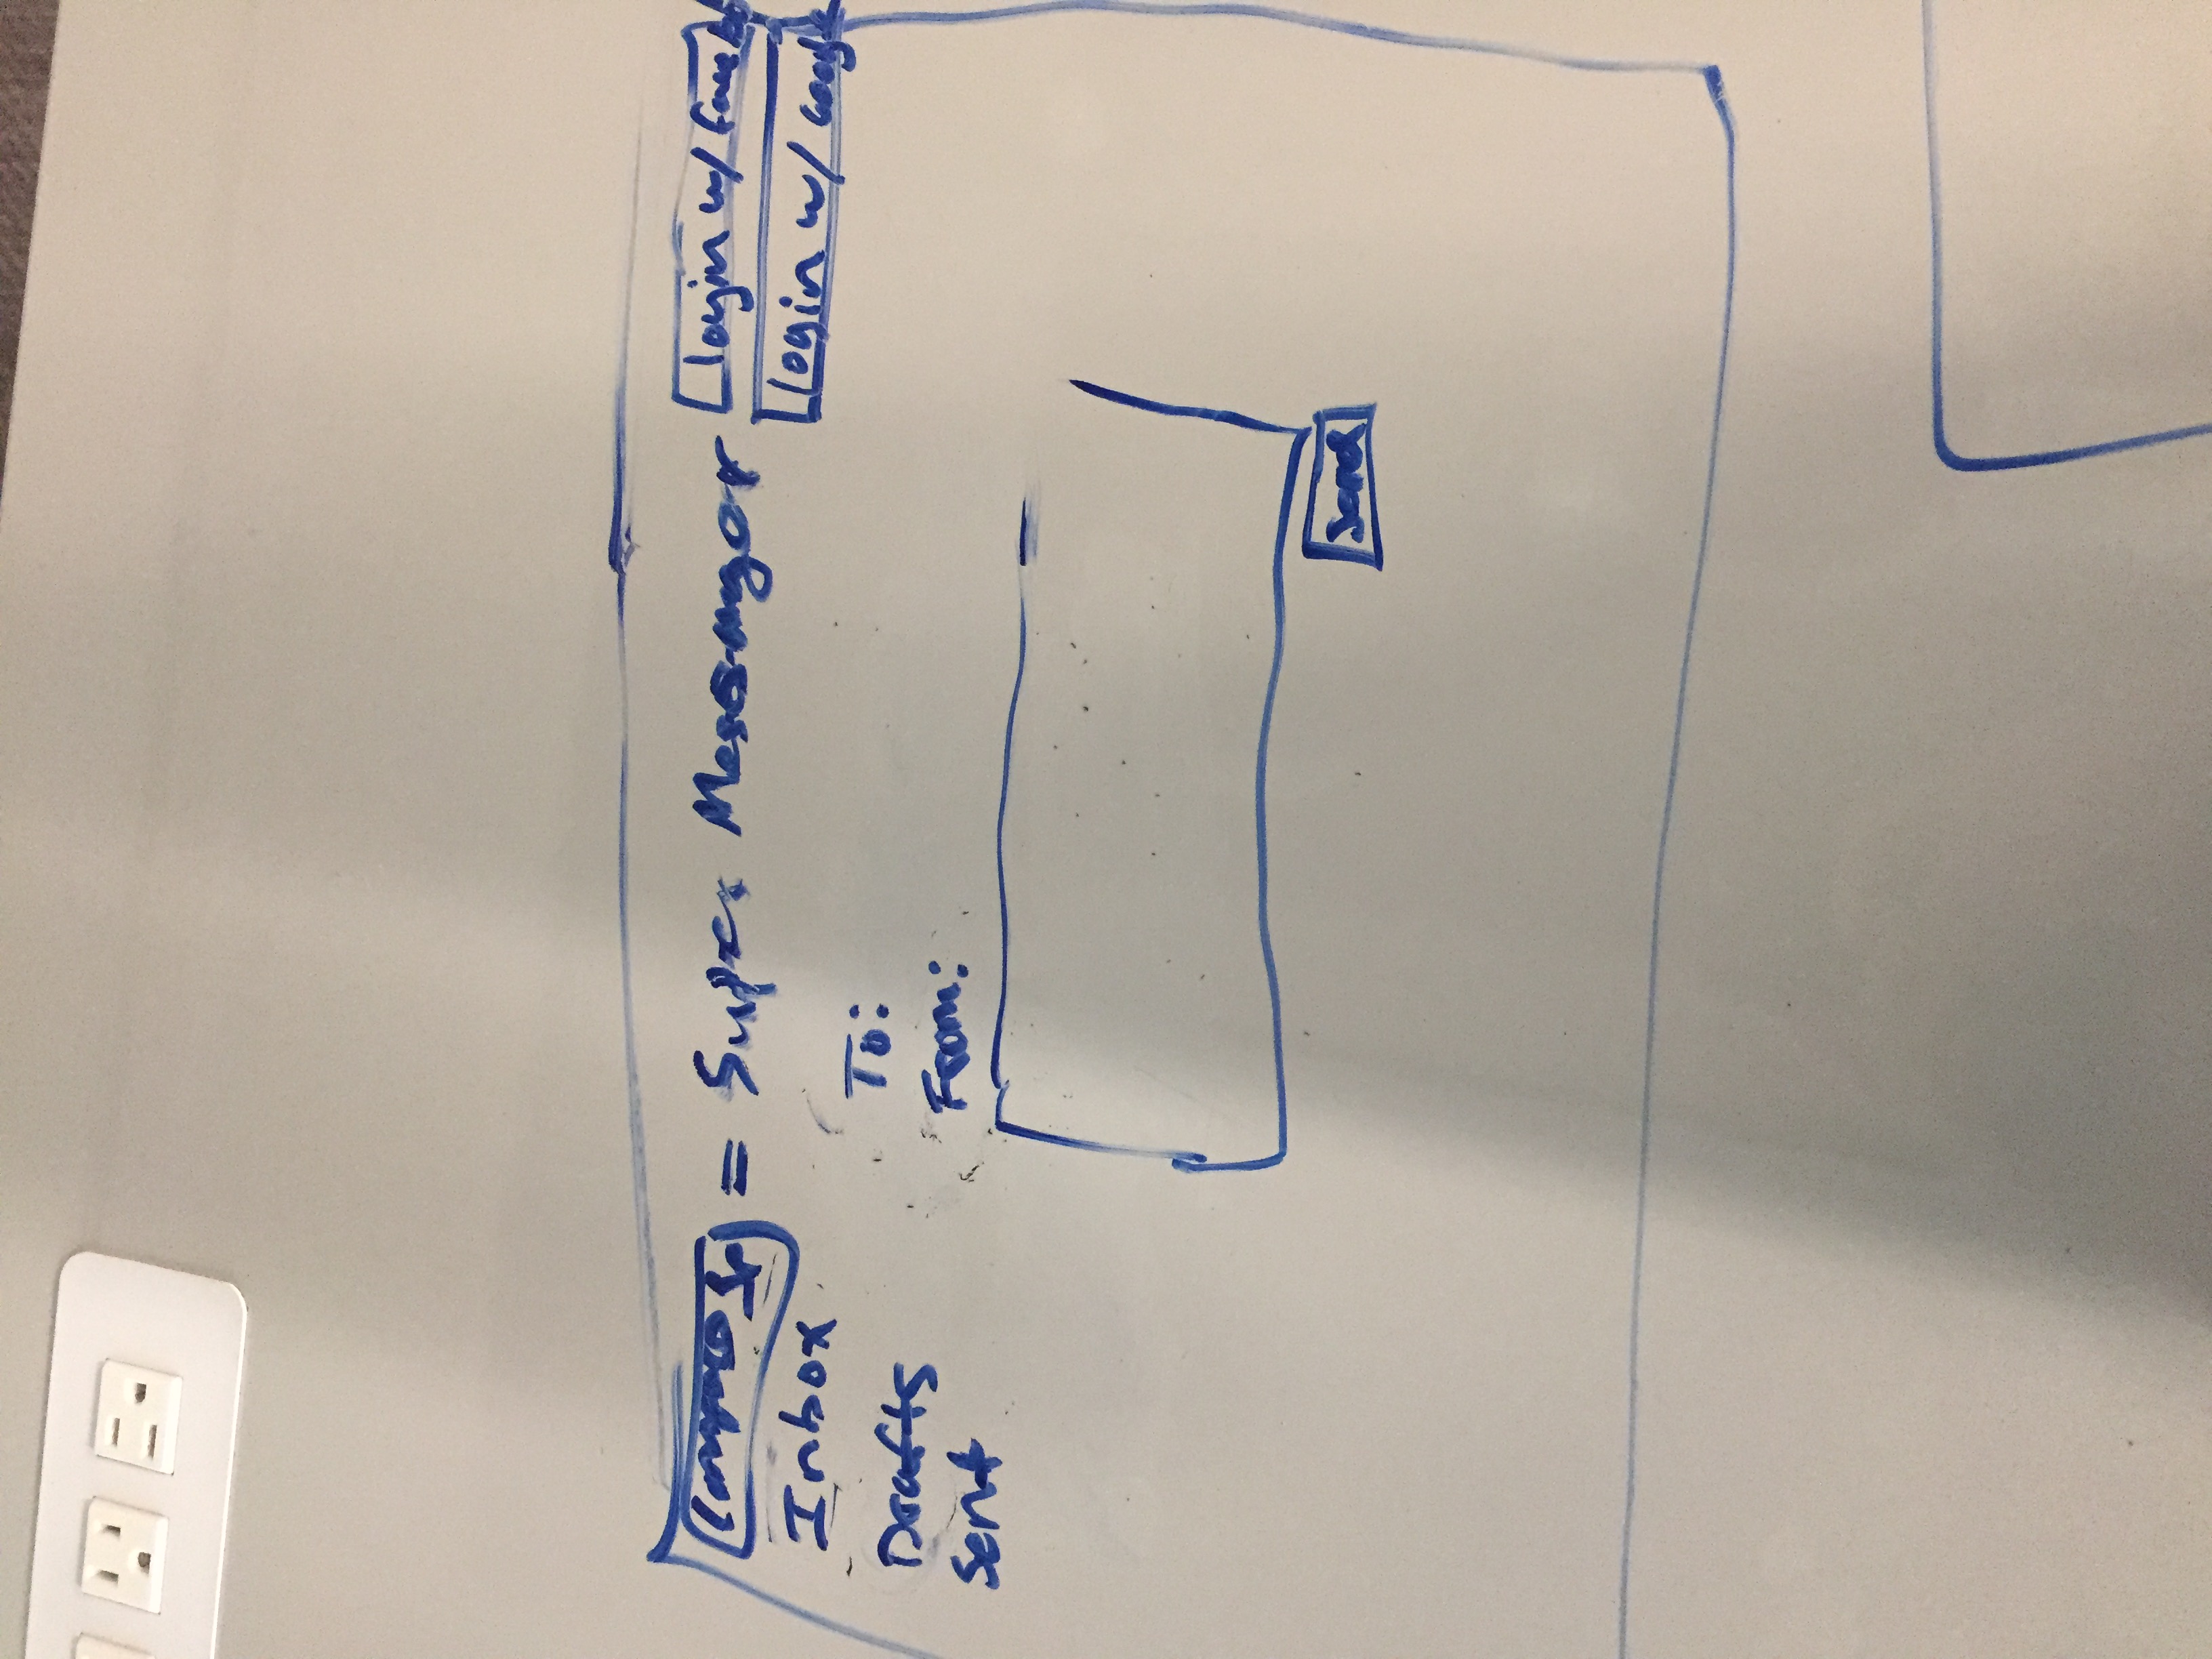 Compose = Super Messenger
Login w/ Facebook
Login w/ Google
Inbox
Drafts
Sent
To:
From:
Send